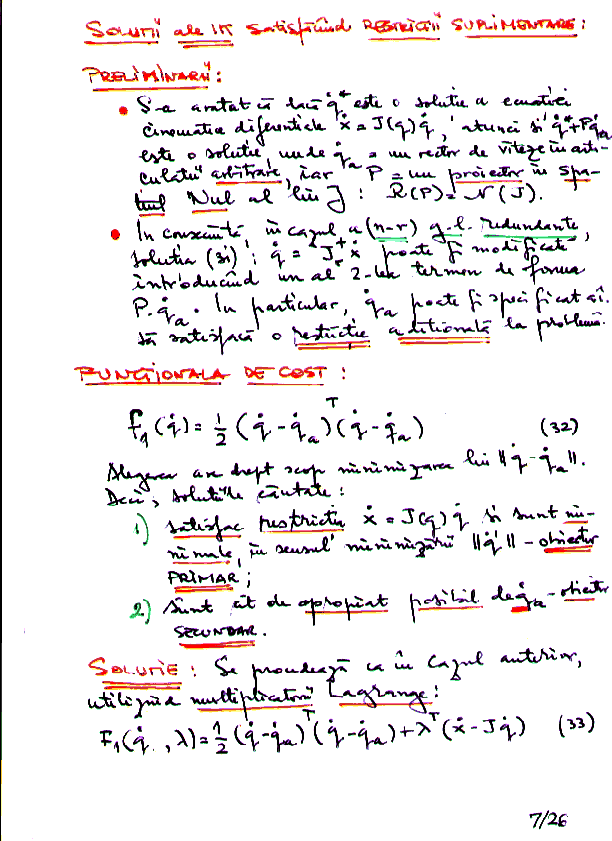 SOLUȚII ale IK satisfăcând RESTRICȚII SUPLIMENTARE:
PRELIMINARII:
• S-a arătat că dacă q̇* este o soluție a ecuației
cinematice diferențiale ẋ = J(q)q̇, atunci și q̇*+Pq̇a
este o soluție, unde q̇a = un vector de viteze în arti-
culații arbitrare, iar P = un proiector în spa-
țiul Nul al lui J : R(P) = N(J).
• În consecință, în cazul a (n-r) g.l. redundante,
soluția (31) : q̇ = J⁺r ẋ poate fi modificată
introducând un al 2-lea termen de forma
P·q̇a. În particular, q̇a poate fi specificat aî.
să satisfacă o restricție adițională la problemă.
FUNCȚIONALA DE COST :
f₁(q̇) = 1/2 (q̇ - q̇a)ᵀ(q̇ - q̇a) (32)
Alegerea are drept scop minimizarea lui ‖q̇ - q̇a‖.
Deci, soluțiile căutate :
1) satisfac restricția ẋ = J(q)q̇ și sunt mi-
nimale, în sensul minimizării ‖q̇‖ - obiectiv
PRIMAR ;
2) Sunt cât de apropiat posibil de q̇a - obiectiv
SECUNDAR.
SOLUȚIE : Se procedează ca în cazul anterior,
utilizând multiplicatorii Lagrange :
F₁(q̇, λ) = 1/2 (q̇ - q̇a)ᵀ(q̇ - q̇a) + λᵀ(ẋ - Jq̇) (33)
7/26